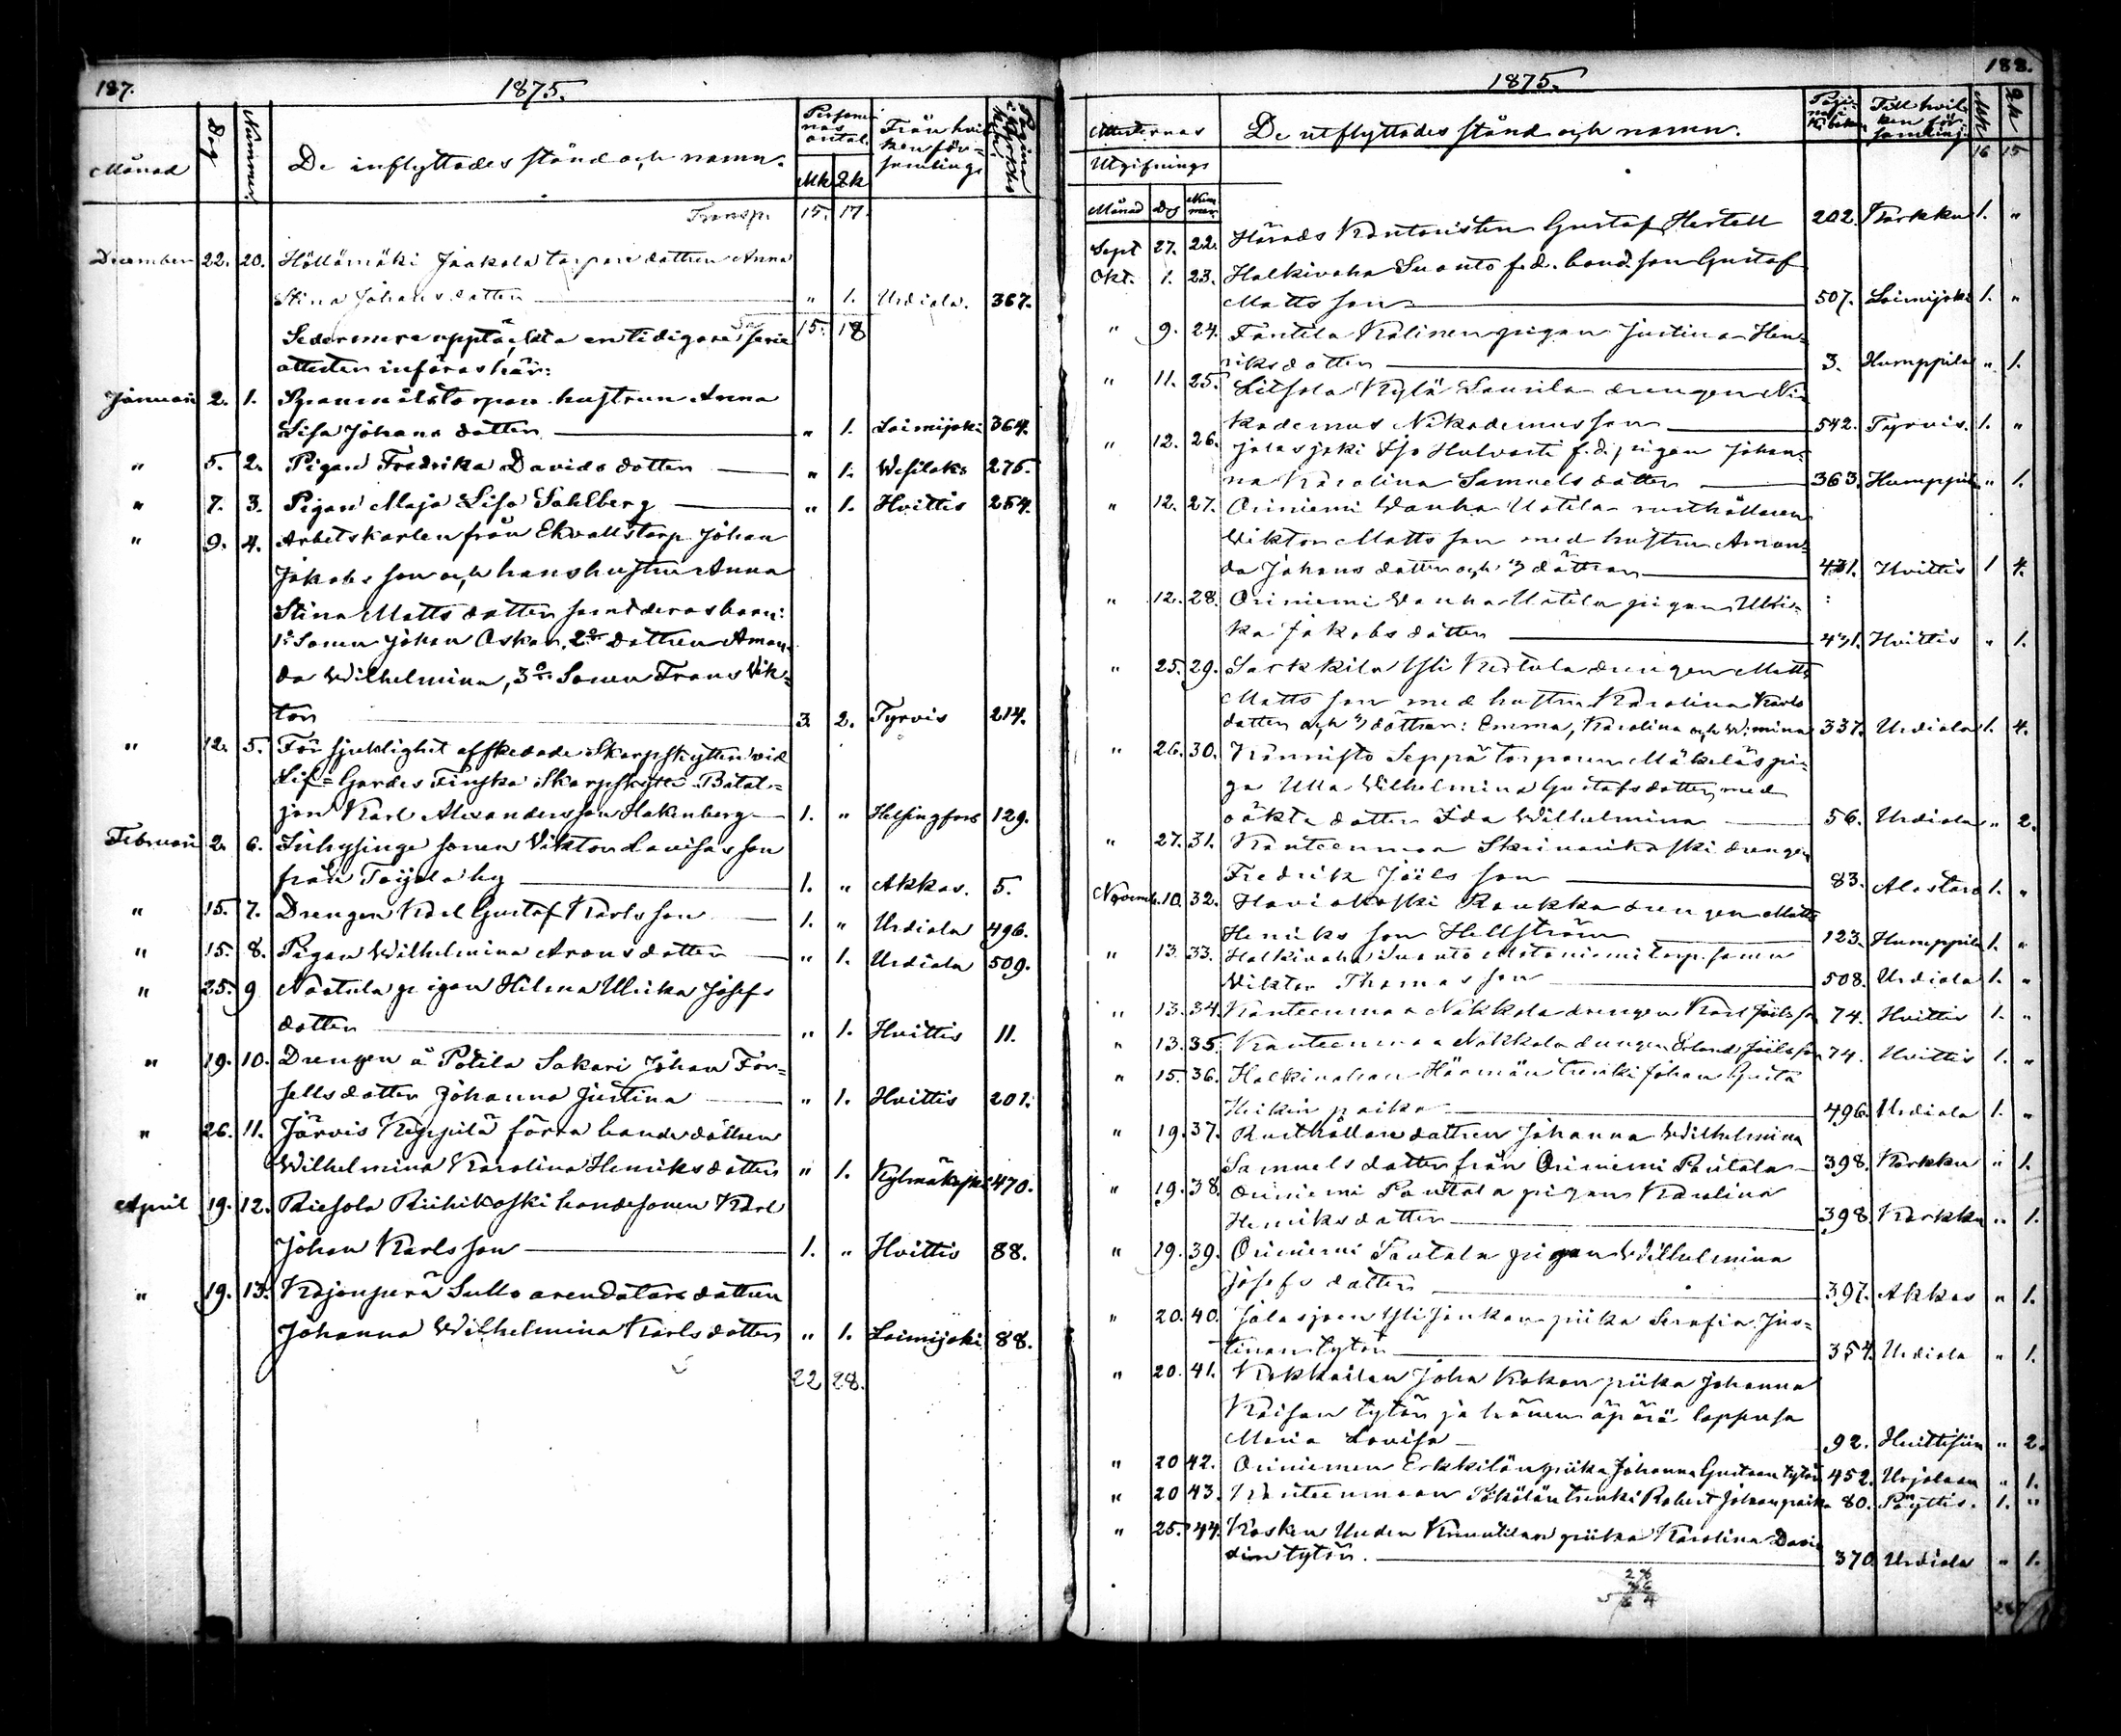 187.
1875.
Månad
Dag
Nummer.
De inflyttades stånd och namn.
Personernas antal.
Mk
Qk
Från hvilken församling
Transp. 15. 17.
December 22. 20. Höllämäki Jaakola torpare dottren Anna
Stina Johans dotter " 1. Urdiala. 367.
15. 18
Sedermera upptäckta en tidigare serie
attester införas här:
Januari 2. 1. torpare hustrun Anna
Lisa Johans dotter " 1. Loimijoki 364.
" 5. 2. Pigan Fredrika Davids dotter " 1. Wesilaks 275.
" 7. 3. Pigan Maja Lisa Sahlberg " 1. Hvittis 254.
" 9. 4. Arbetskarlen från Ekvalls torp Johan
Jakobs son och hans hustru Anna
Stina Matts dotter samt deras barn:
1o Sonen Johan Oskar, 2o dottren Aman-
da Wilhelmina, 3o Sonen Frans Vik-
tor 3. 2. Tyrvis 214.
" 12. 5. För sjuklighet afskedade Skarpskytten vid
Lif-Gardes Finska Skarpskytte Batal-
jon Karl Alexandersson Hakenberg 1. " Helsingfors 129.
Februari 2. 6. sonen Viktor Lovisas son
från Toijola by 1. " Akkas. 5.
" 15. 7. Drengen Karl Gustaf Karls son 1. " Urdiala 496.
" 15. 8. Pigan Wilhelmina Arons dotter " 1. Urdiala 509.
" 25. 9 Naatula pigan Hilma Ulrika Josefs
dotter " 1. Hvittis 11.
" 19. 10. Drengen å Potila Sakari Johan For-
sells dotter Johanna Justina " 1. Hvittis 201.
" 26. 11. Järvis Reppilä förra bonde dottren
Wilhelmina Karolina Henriks dotter " 1. Kylmäkoski 470.
April 19. 12. Riesola Riihikoski bondesonen Karl
Johan Karls son 1. " Hvittis 88.
" 19. 13. Kojonperä Sullo arendators dottren
Johanna Wilhelmina Karls dotter " 1. Loimijoki 88.
22 28.
188.
1875.
Attesternas
Utgifnings
Månad
Dag
Nummer
De utflyttades stånd och namn.
Till hvilken församling
Mk
Qk
16 15
Sept 27. 22. Härads Kantoristen Gustaf Hertell 202. Karkku 1. "
Okt. 1. 23. Halkivaha Suonto f.d. bond son Gustaf
Matts son 507. Loimijoki 1. "
" 9. 24. Fäntilä Kalinen pigan Justina Hen-
riks dotter 3. Humppila " 1.
" 11. 25. Liitsola Kylä Laurila drengen Ni-
kodemus Nikodemus son 542. Tyrvis. 1. "
" 12. 26. Jalasjoki Iso Hulvasti f.d. pigan Johan-
na Karolina Samuels dotter 363. Humppila " 1.
" 12. 27. Oriniemi Wanha Uotila rusthållaren
Wiktor Matts son med hustru Aman-
da Johans dotter och 3 döttrar 431. Hvittis 1 4.
" 12. 28. Oriniemi Wanha Uotila pigan Ulri-
ka Jakobs dotter 431. Hvittis " 1.
" 25. 29. Sarkkila Yli Kertula drengen Matts
Matts son med hustru Karolina Karls
dotter och 3 döttrar: Emma, Karolina och W:mina 337. Urdiala 1. 4.
" 26. 30. Kännistö Seppä torparen Mäkeläs pi-
ga Ulla Wilhelmina Gustafs dotter med
oäkta dotter Ida Wilhelmina 56. Urdiala " 2.
" 27. 31. Kanteenmaa Skinnarikoski drengen
Fredrik Joels son 83. Alastaro 1. "
Novemb. 10. 32. Haviokoski Raukka drengen Matts
Henriks son Hellström 123. Humppila 1. "
" 13. 33. Halkivaha Suonto torp. sonen
Wiktor Thomas son 508. Urdiala 1. "
" 13. 34. Kanteenmaa Nokkola drengen Karl Joels son 74. Hvittis 1. "
" 13. 35. Kanteenmaa Nokkola drengen Erland Joels son 74. Hvittis 1. "
" 15. 36. Halkivahan Häämän trenki Johan Kusta
Heikin poika 496. Urdiala 1. "
" 19. 37. Rusthållare dottren Johanna Wilhelmina
Samuels dotter från Oriniemi Pautala 398. Karkku " 1.
" 19. 38. Oriniemi Pautala pigan Karolina
Henriks dotter 398. Karkku " 1.
" 19. 39. Oriniemi Pautala pigan Wilhelmina
Josefs dotter 397. Akkas " 1.
" 20. 40. Jalasjoen piika Serafia Jus-
tinan tytär 354. Urdiala " 1.
" 20. 41. Kokkailan Joha Kokon piika Johanna
Kaisan tytär ja hänen äpärä lappsensa
Maria Lovisa 92. Huittisiin " 2.
" 20 42. Oriniemen Erkkilän piika Johanna Gustaan tytär 452. Urjalaan " 1.
" 20 43. Kanteenmaan trenki Robert Johan poika 80. Pöyttis. 1. "
" 25. 44. Kosken Uuden Knuutilan piika Karolina Davi-
din tytär. 370. Urdiala " 1.